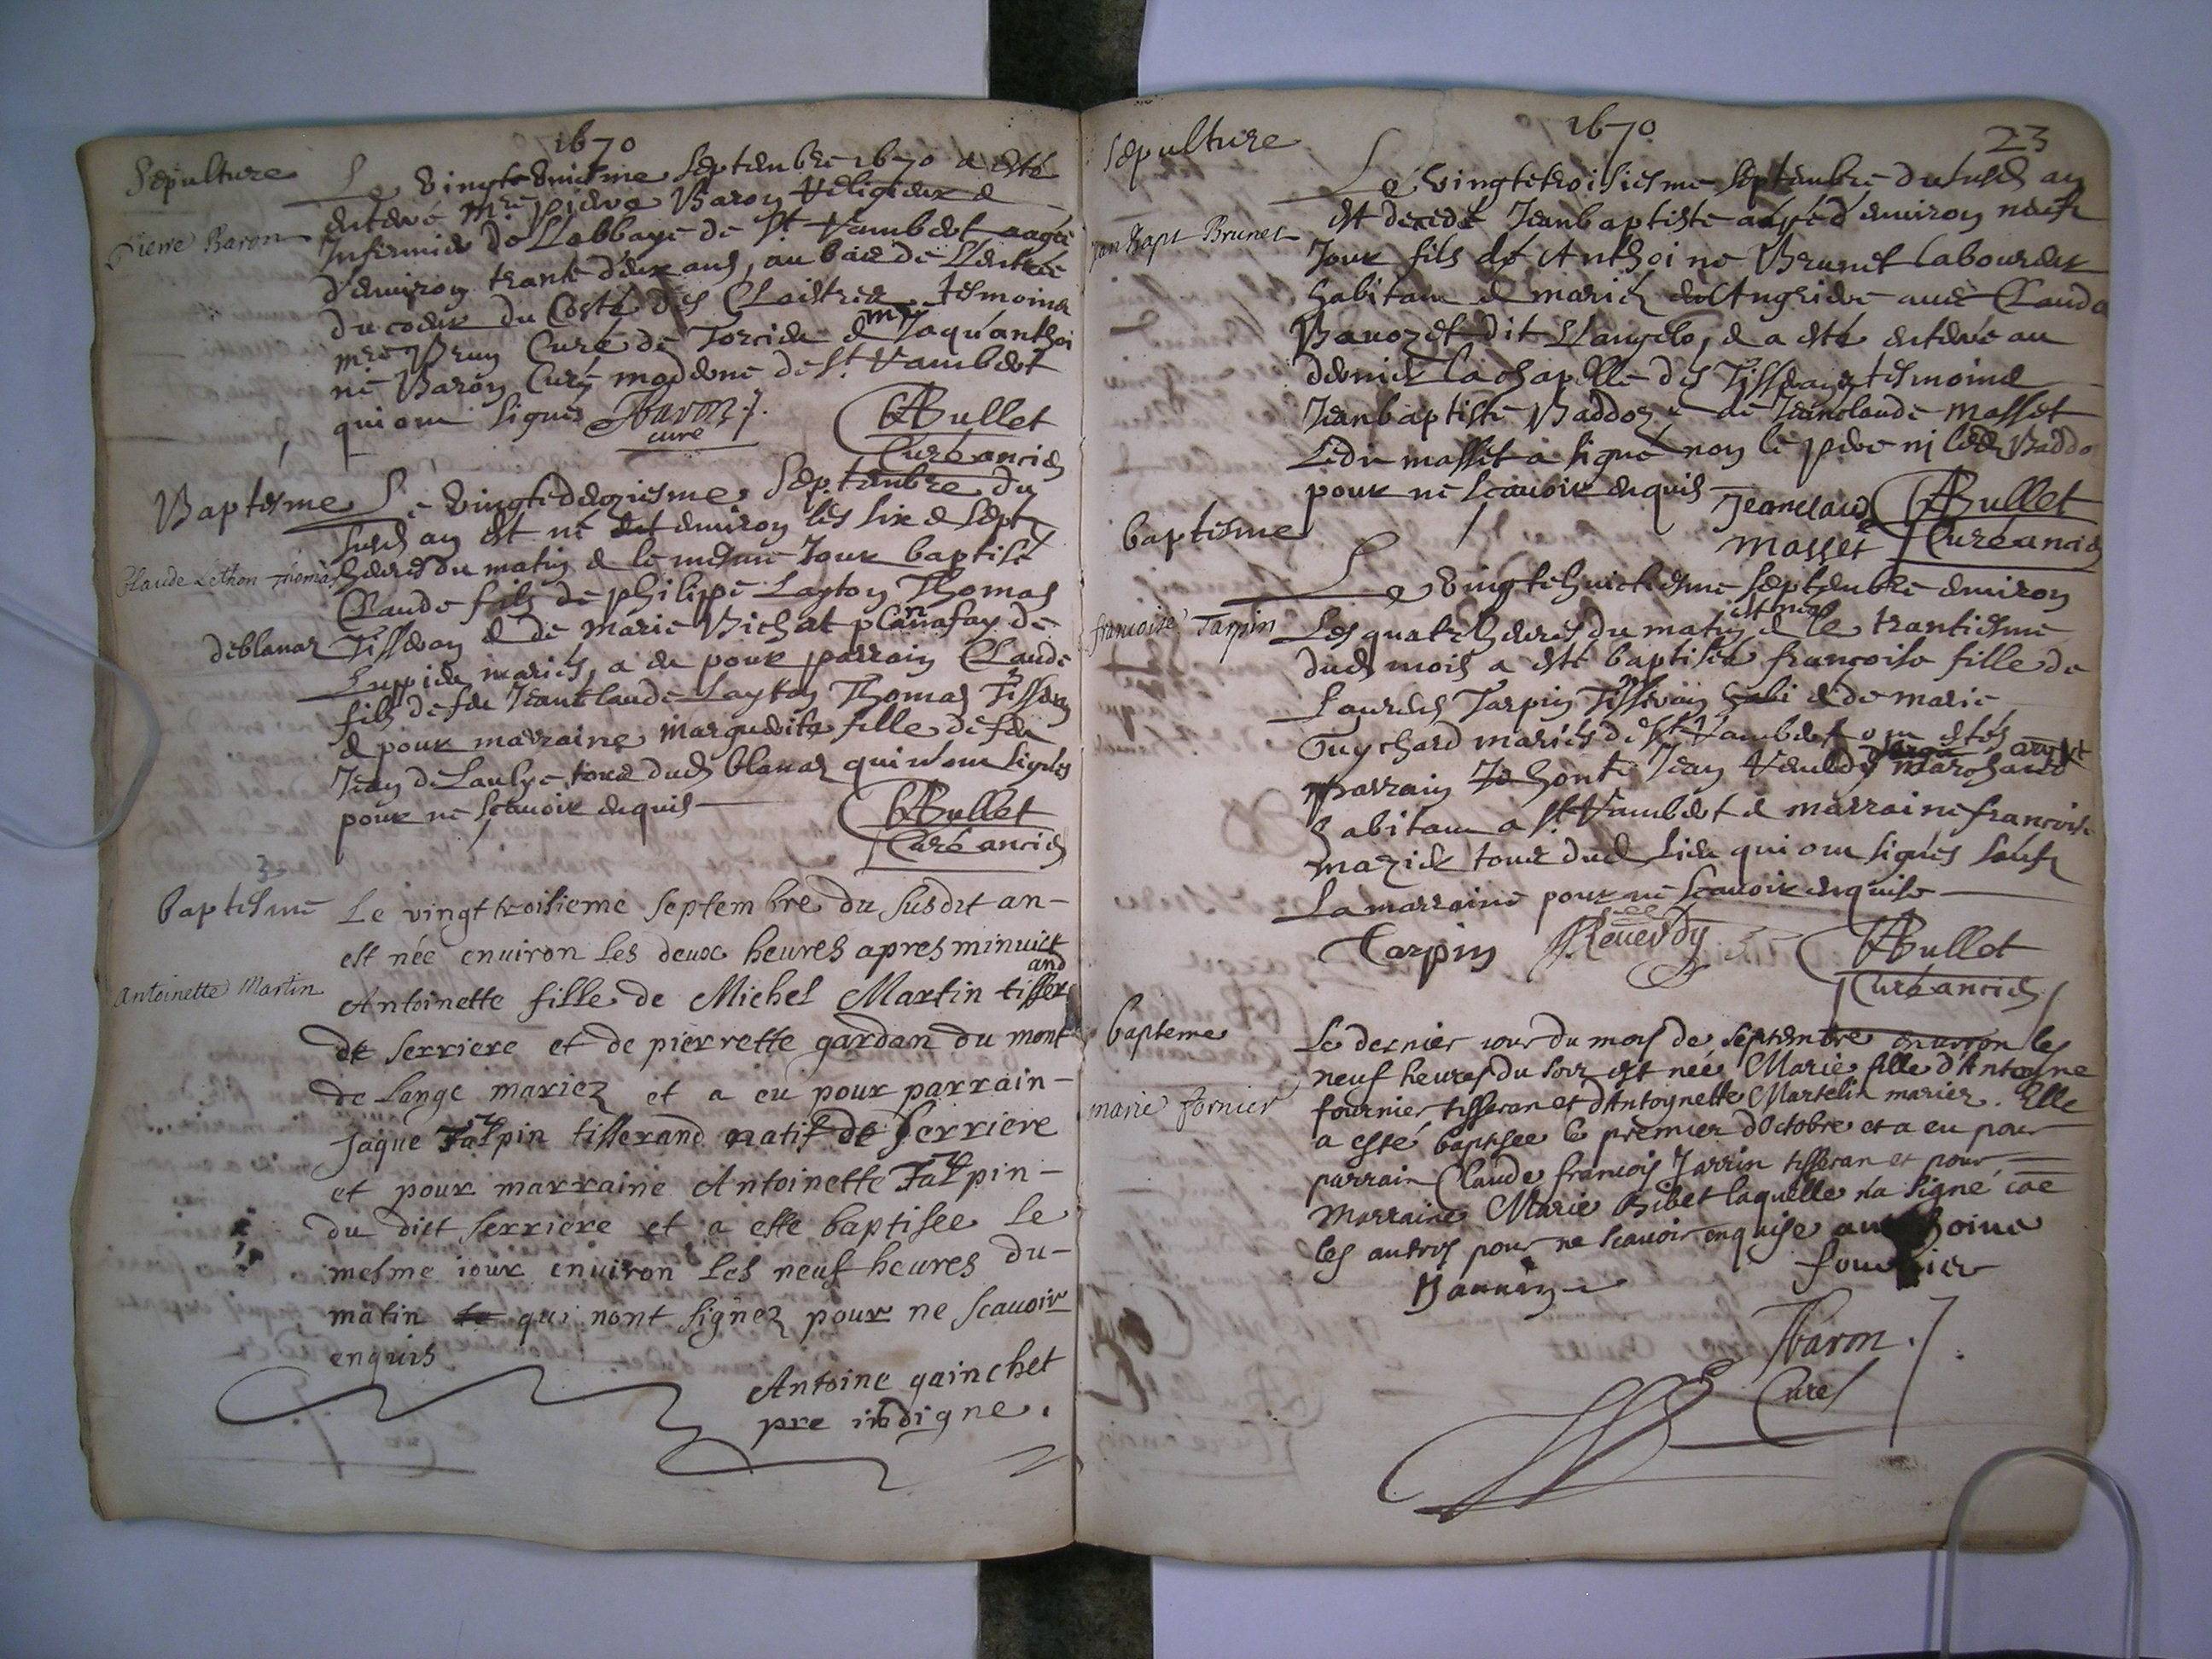 1670
Sepulture
Pierre Baron
Le vingte uniesme Septembre 1670 a esté
enterré Mre Pierre Baron Religieux &
Infirmier de Labbaye de St Rambert aagé
d'environ trante deux ans, au bas de Lentrée
du coeur du Costé des Cloistres tesmoins
mre Brun Curé de Torcieu & mre Jaqu'anthoi
ne Baron Curé moderne de St Rambert
qui ont signés Baron
curé
ABullet
Curé ancien
Baptesme
Claude Lethon Thomas
de blanaz
Le vingtedeuziesme Septembre du
susd an est né environ les six & sept
heures du matin & le mesme Jour baptisé
Claude fils de philippe Layton Thomas
Tisseran & de Marie Bichat
mariés, a eu pour parrain Claude
fils de feu Jeanclaude Layton Thomas Tisseran
& pour marraine Marguerite fille de feu
Jean de Laulye tous dud blanaz qui n'ont signés
pour ne scavoir enquis
ABullet
Curé ancien
baptesme
Antoinette Martin
Le vingt troisieme Septembre du susdit an -
est née environ les deux heures apres minuict
Antoinette fille de Michel Martin tisserand
de serriere et de pierrette gardan du mont
de lange mariez et a eu pour parrain -
Jaque Tarpin tisserand natif de serriere
et pour marraine Antoinette Tarpin -
du dict serriere et a este baptisee le
mesme iour environ les neuf heures du -
matin qui nont signez pour ne scavoir
enquis
Antoine gainchet
pre indigne.
1670
23
Sepulture
Jan bapt Brunet
Le vingtetroisiesme Septembre du susd an
est decedé Jeanbaptiste aagé d'environ neuf
Jour fils de Anthoine Brunet laboureur
habitant & mariés en Angrieres avec Claude
Bavozet dit Langelo, & a esté enterré au
devnier la chapelle des Tisserans tesmoins
Jeanbaptiste Baddoz & de Jeanclaude Masset
Ledit masset a signé non le pere ni led Baddo
pour ne scavoir enquis
Jeanclaude
Masset
ABullet
Curé ancien
baptesme
francoise Tarpin
Le vingtehuictiesme Septembre environ
Les quatre heures du matin est née & le trantiesme
dud mois a esté baptisée francoise fille de
Laurens Tarpin Tisseran & de Marie
Guychard mariés de St Rambert ont estés
parrain honte Jean Reverdy Marchand
habitant a St Rambert & marraine francoise
Mazier tous dud Lieu qui ont signés sauf
La marraine pour ne scavoir enquise
Tarpin JReuerdy
ABullet
Curé ancien
bapteme
marie fornier
Le dernier iour du mois de septembre environ les
neuf heures du soir est née Marie fille d'Antoyne
fournier tisseran et d'Antoynette Martelin mariez. Elle
a esté baptisee le premier d'Octobre et a eu pour
parrain Claude francois Jarrin tisseran et pour
Marraine Marie Bibet laquelle n'a signé coe
les autres pour ne scauoir enquise anthoine
fournier
Baron
Curé